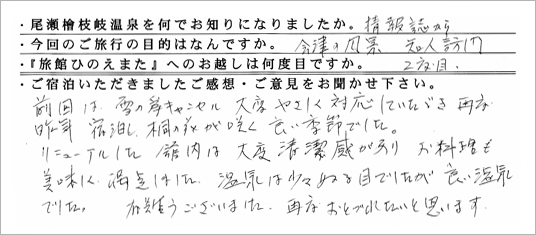 ・尾瀬檜枝岐温泉を何でお知りになりましたか。情報誌から
・今回のご旅行の目的はなんですか。会津の風景 知人訪問
・『旅館ひのえまた』へのお越しは何度目ですか。2度目.
・ご宿泊いただきましたご感想・ご意見をお聞かせ下さい。
前回は雪の為キャンセル 大変やさしく対応していただき再度
昨年 宿泊し、桐の花が咲く良い季節でした。
リニューアルした館内は大変清潔感があり お料理も
美味しく満足しました. 温泉は少々ぬる目でしたが良い温泉
でした。 有難うございました. 再度おとづれたいと思います.